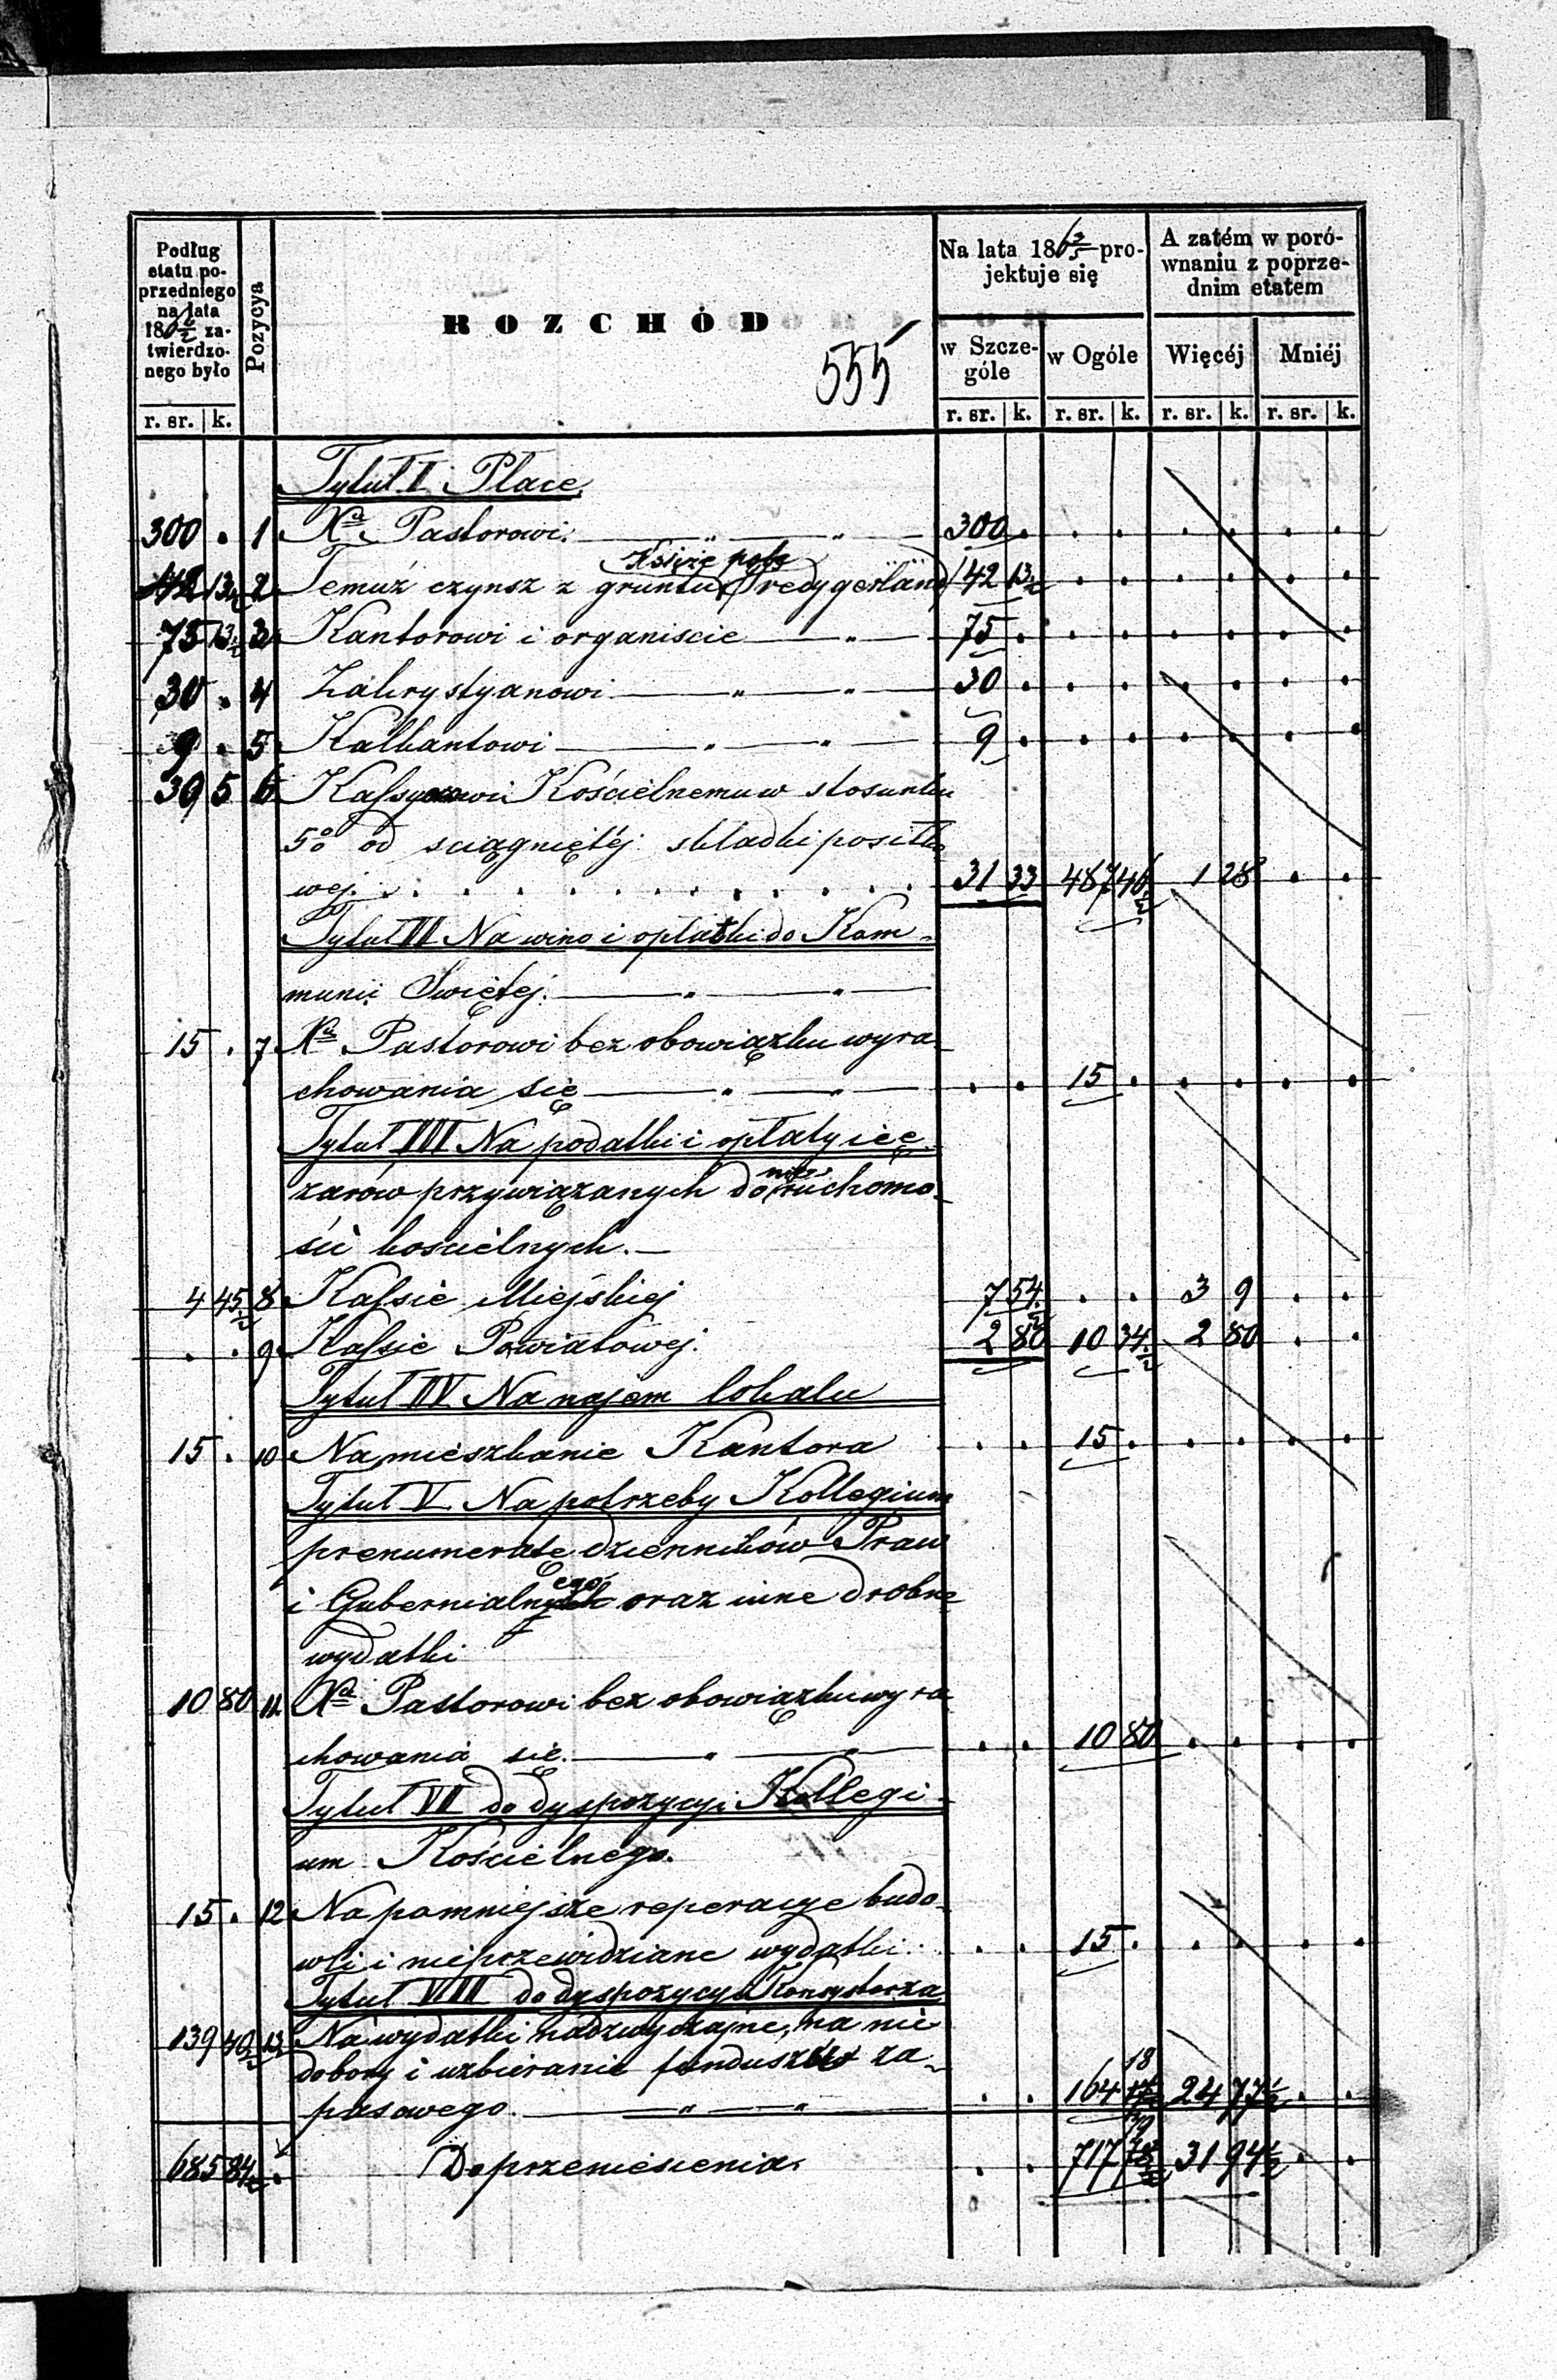 Podług etatu poprzedniego na lata 186 0/2 zatwierdzonego było | Pozycya | ROZCHÓD | Na lata 186 3/5 projektuje się | A zatém w porównaniu z poprzednim etatem
555
w Szczególe | w Ogóle | Więcéj | Mniéj
r. sr. | k. | r. sr. | k. | r. sr. | k. | r. sr. | k. | r. sr. | k.
Tytuł I. Płace.
300 . 1 Xu Pastorowi. 300 .
42 13½ 2 Temuż czynsz z gruntu (Predygerland) 42 13½
75 3 Kantorowi i organiscie 75 .
30 . 4 Zakrystyanowi 30 .
9 . 5 Kalkantowi 9 .
30 5 6 Kassyerowi Kościelnemu w stosunku
5% od sciągniętéj składki posiłko
wej. 31 33 487 46½ 1 28
Tytuł II Na wino i opłatki do Kom-
munii Swiętej.
15 . 7 Xu Pastorowi bez obowiązku wyra-
chowania się 15 .
Tytuł III Na podatki i opłaty i cię-
zarów przywiązanych do nieruchomo-
ści kościelnych.
4 45½ 8 Kassie Miejskiej 7 54½ 3 9
. . 9 Kassie Powiatowej. 2 80 10 34½ 2 80
Tytuł IV Na najem lokalu
15 . 10 Na mieszkanie Kantora 15 .
Tytuł V Na potrzeby Kollegium
prenumeratę dzienników Praw
i Gubernialnego oraz inne drobne
wydatki
10 80 11. Xu Pastorowi bez obowiązku wyra-
chowania się. 10 80
Tytuł VI do dyspozycyi Kollegi-
um Kościelnego.
15 . 12 Na pomniejsze reperacye budo-
wli i nieprzewidziane wydatki. 15 .
Tytuł VII do dyspozycyi Konsystorza
139 40½ 13 Na wydatki nadzwyczajne, na nie
dobory i uzbieranie funduszu za-
pasowego. 164 18 24 77½
685 84½ Do przeniesienia. 717 31 94½